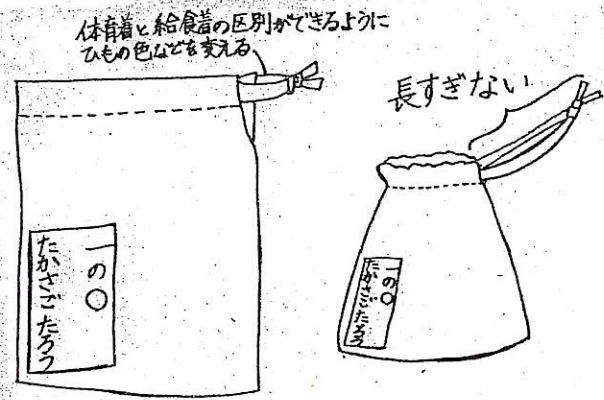 体育着と給食着の区別ができるように
ひもの色などを変える
長すぎない
一の○
たかさご たろう
一の○
たかさごたろう